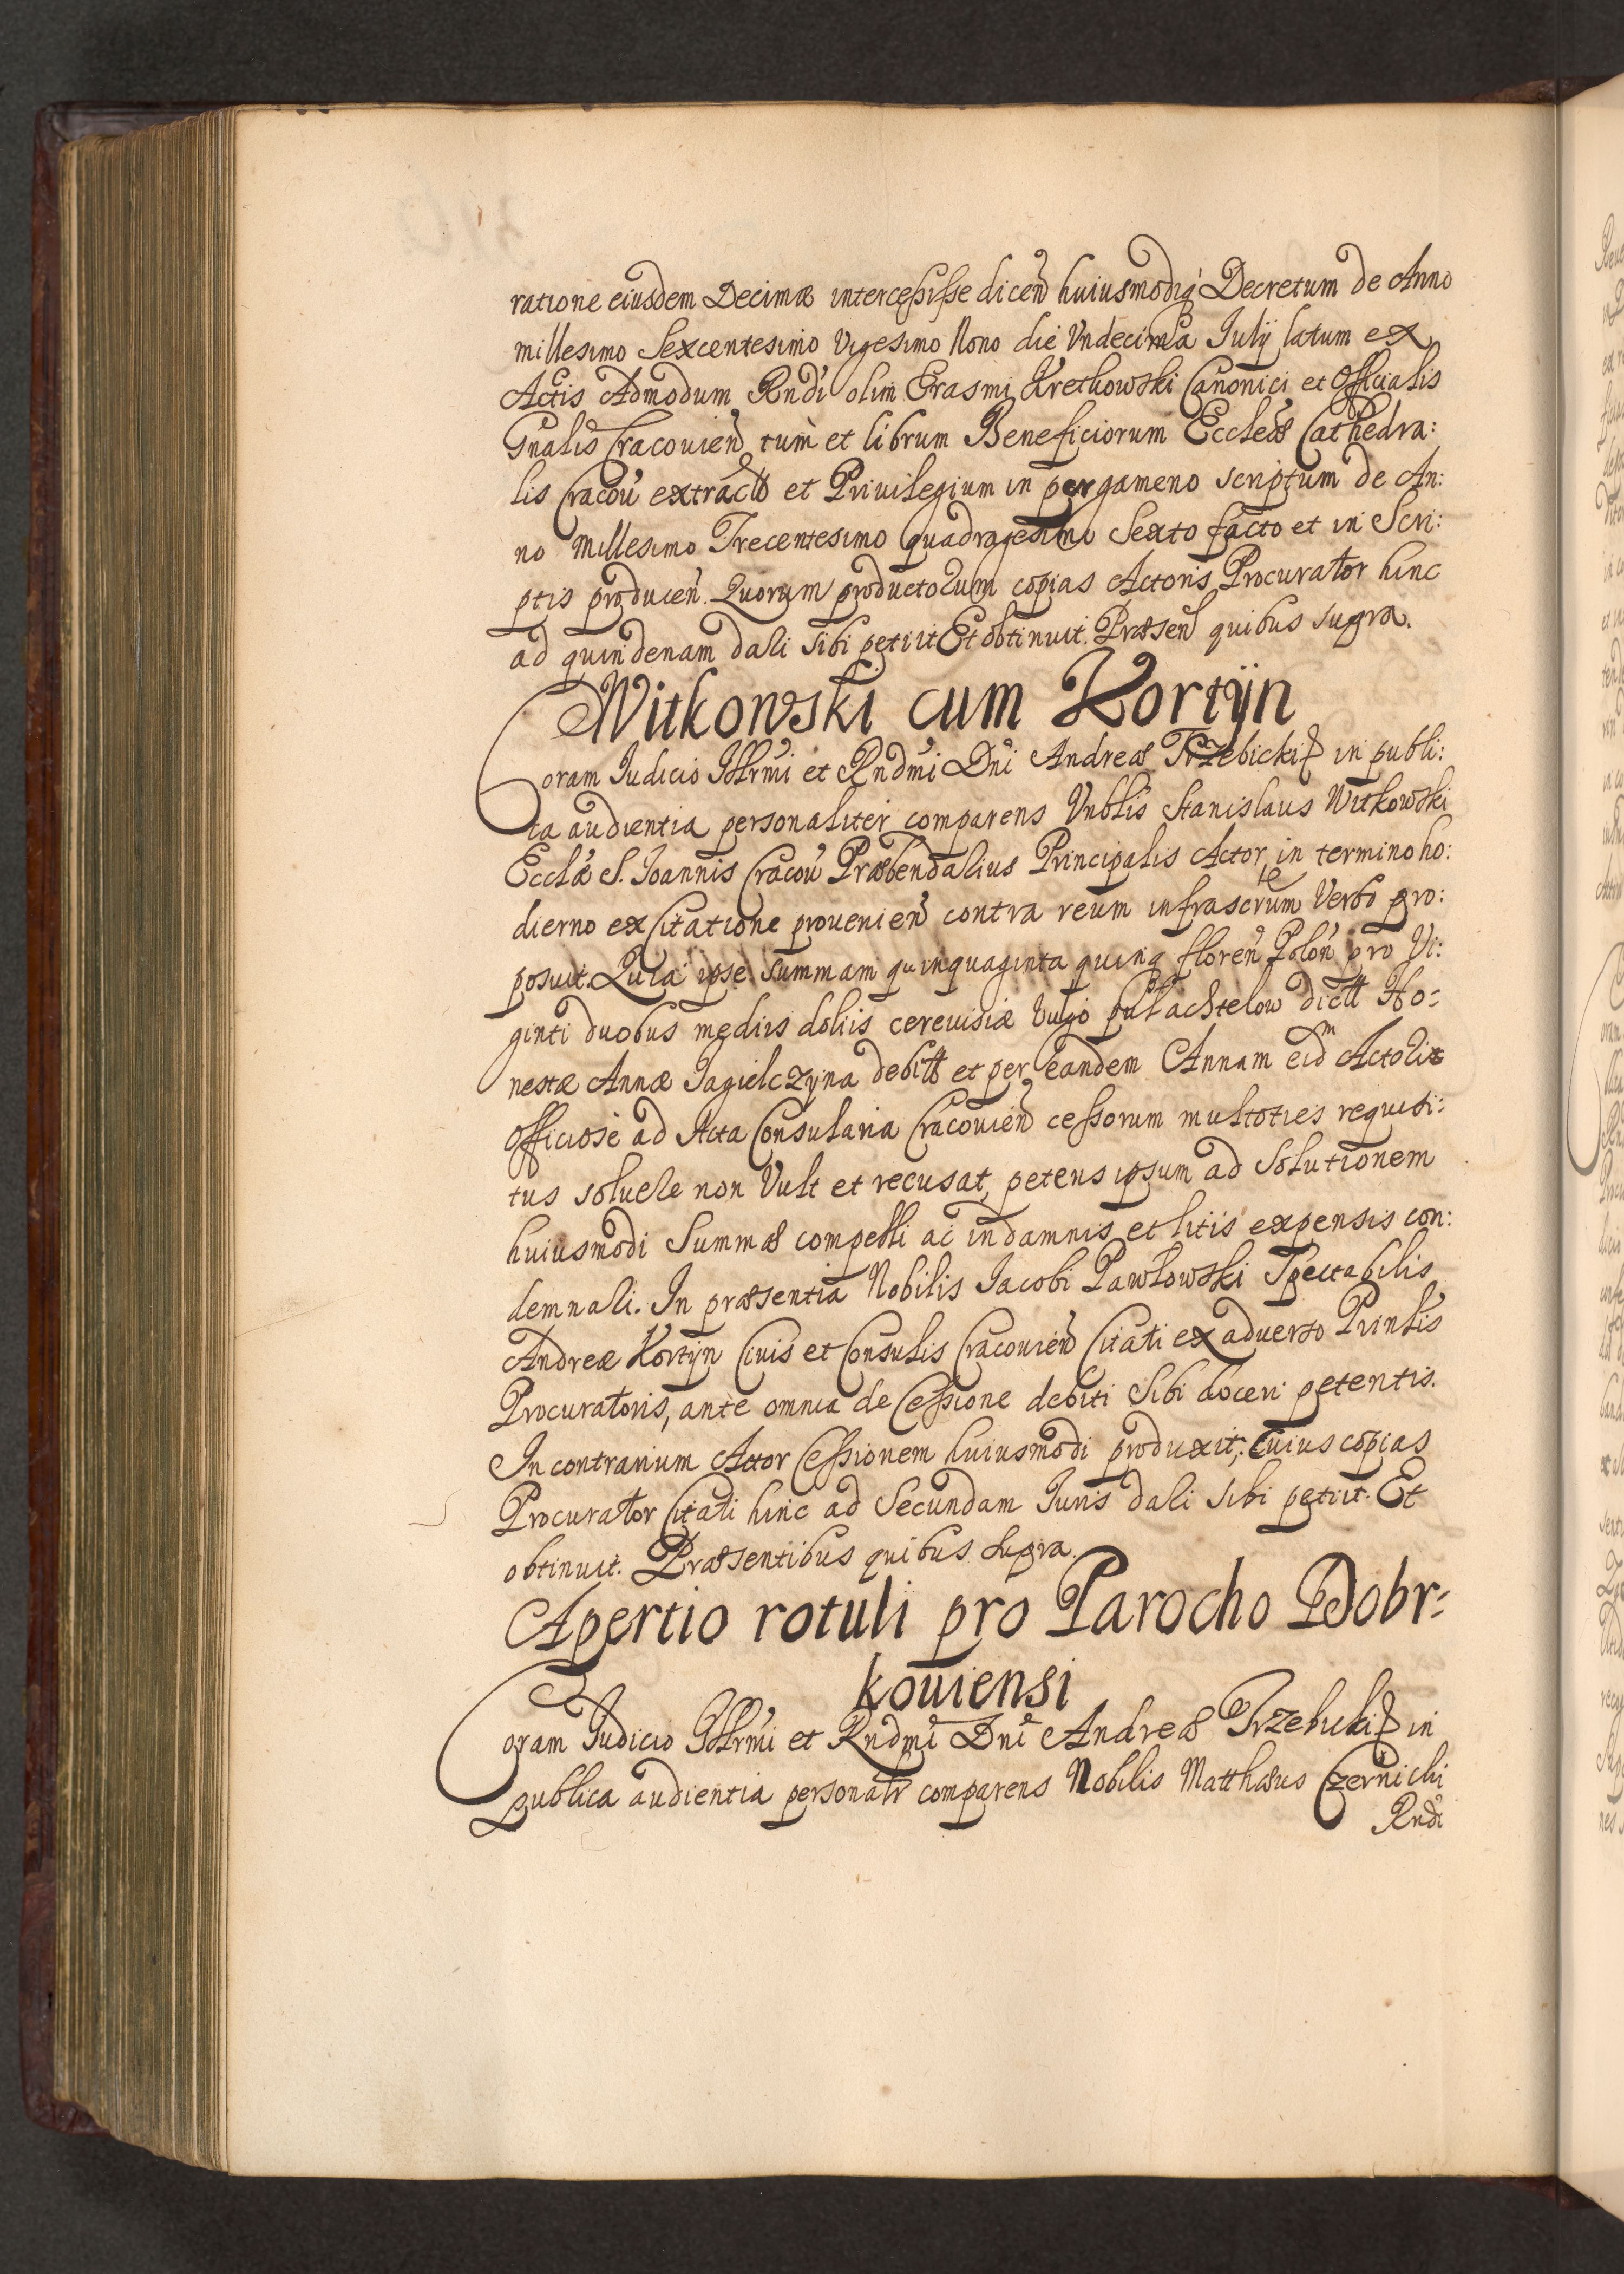 ratione eiusdem Decimæ intercessisse dicen̄ huiusmodiq́ Decretum de Anno
millesimo Sexcentesimo Vigesimo Nono die Vndecima Julÿ latum ex
Actis Admodum Rndi olim Erasmi Kretkowski Canonici et Officialis
Gnalis Cracouien̄ tum et librum Beneficiorum Eccleæ Cathedra:
lis Cracou̅ extract et Priuilegium in pergameno scriptum de An:
no Millesimo Trecentesimo quadragesimo Sexto facto et in Scri:
ptis producen̄. Quorum productorum copias Actoris Procurator hinc
ad quindenam dari sibi petiit Et obtinuit. Præsen̄ quibus supra.
Witkowski cum Kortÿn
Coram Judicio Illrmi et Rndmi Dni Andreæ Trzebicki in publi:
ca audientia personaliter comparens Vnblis Stanislaus Witkowski
Ecclæ S. Joannis Cracou̅ Præbendarius Principalis Actor in termino ho:
dierno ex Citatione prouenien̄ contra reum infrascrum Verbo pro:
posuit. Quia ipse summam quinquaginta quinq floren̄ Polon̄ pro Vi:
ginti duobus medijs dolijs cereuisiæ Vulgo pułachtelow dictt Ho:
nestæ Annæ Jagielczyna debitt et per eandem Annam eidm Actori
officiose ad Acta Consularia Cracouien̄ cessorum multoties requisi:
tus soluere non Vult et recusat, petens ipsum ad Solutionem
huiusmodi Summæ compelli ac in damnis et litis expensis con:
demnari. In præsentia Nobilis Jacobi Pawłowski Spectabilis
Andreæ Kortÿn Ciuis et Consulis Cracouien̄ Citati ex aduerso Prinlis
Procuratoris, ante omnia de Cessione debiti Sibi doceri petentis.
In contrarium Actor Cessionem huiusmodi produxit, Cuius copias
Procurator Citati hinc ad Secundam Juris dari sibi petiit. Et
obtinuit. Præsentibus quibus supra.
Apertio rotuli pro Parocho Dobr:
kouiensi
Coram Judicio Illrmi et Rndmi Dni Andreæ Trzebicki in
publica audientia personalr comparens Nobilis Matthæus Czernichi
Rndi